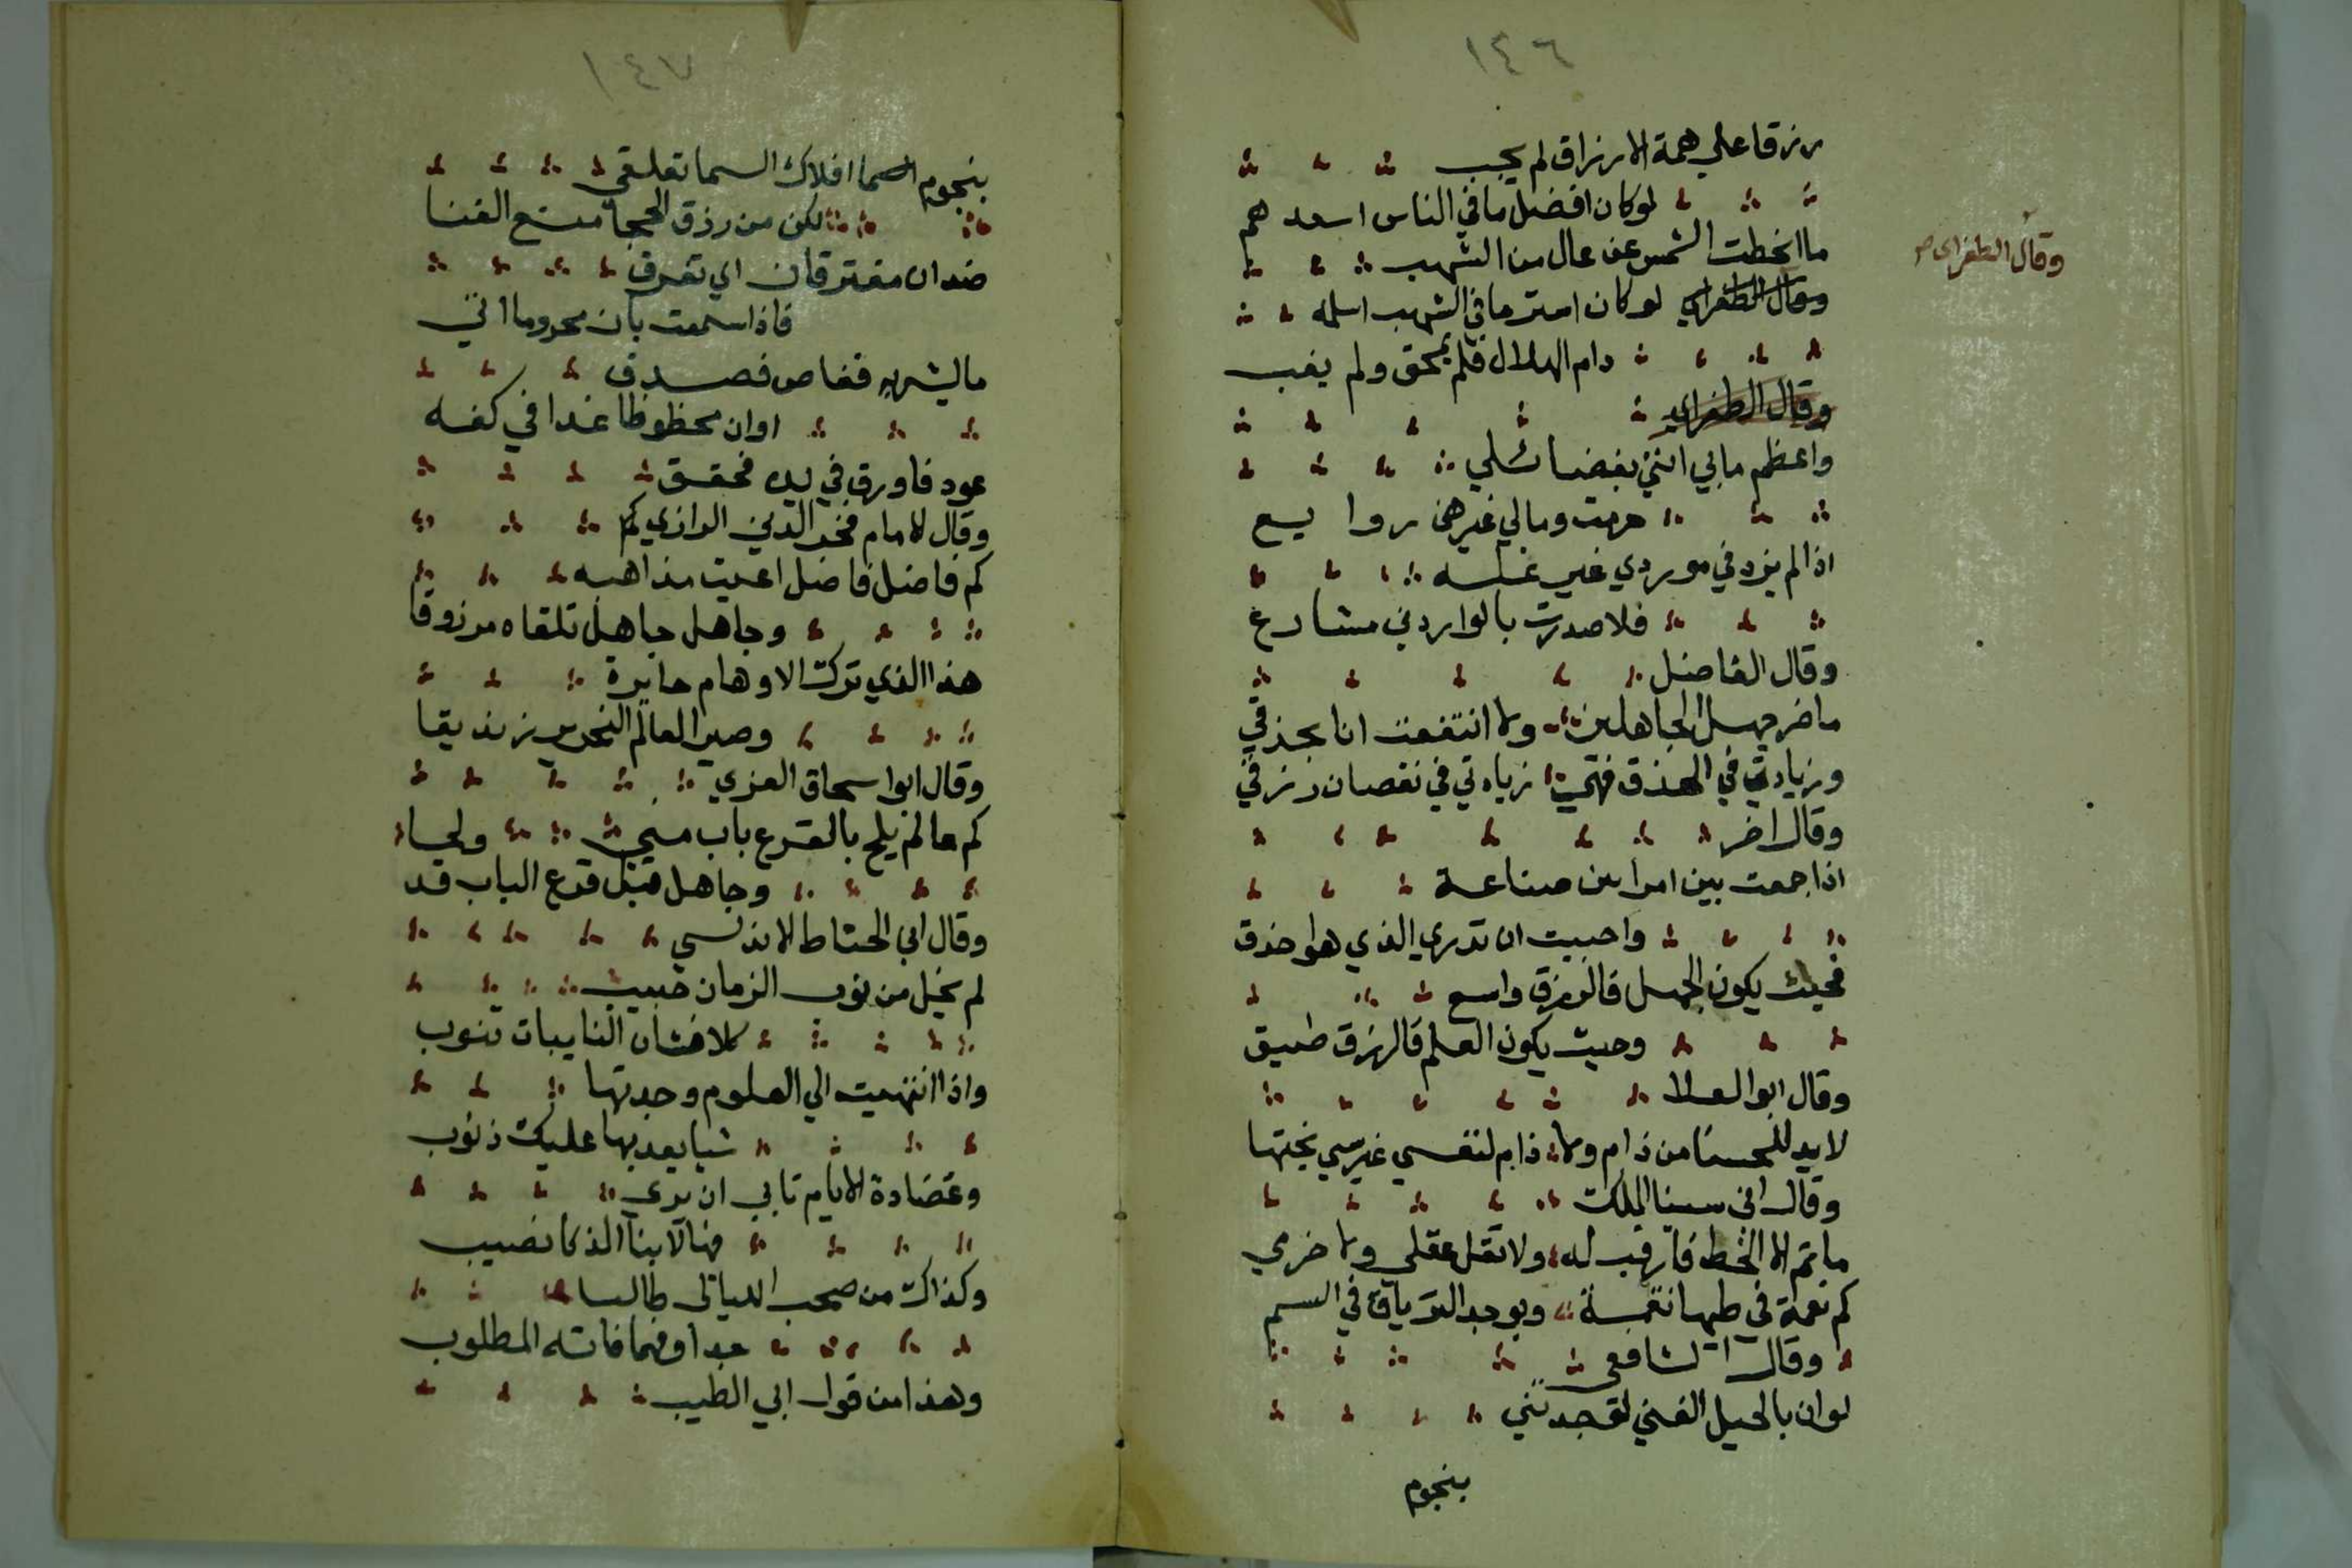 ١٤٦
رزقا على همة الارزاق لم يجب
لو كان افضل ما في الناس اسعدهم
ما انحطت الشمس عن عال من الشهب
وقال الطغراى
وقال الطغراي لو كان ايسر ما في الشهب اسلمه
دام الهلال فلم يمحق ولم يغب
وقال الطغراي
واعظم ما بي انني بفضائلي
حرمت ومالي غيرهن روايسع
اذا لم يزد في موردي غير غلسه
فلا صدرت بالواردين مشارع
وقال الفاضل
ما ضر جهل الجاهلين ولا انتفعت انا بحذقي
وزيادتي في الحذق فهي زيادتي في نقصان رزقي
وقال اخر
اذا جمعت بين امراين صناعة
واحببت ان تدري الذي هوا حذق
فحيث يكون الجهل فالرزق واسع
وحيث يكون العلم فالرزق ضيق
وقال ابو العلا
لا بد للحسنا من ذام ولا ذام لنفسي غير سي بختها
وقال ابن سينا الملك
ما تم الا الحظ فارقب له ولا تقل عقلي ولا حزمي
كم نعمة في طيها نقمة ويوجد الترياق في السم
وقال الشافعى
لو ان بالحيل الغني لوجدتني
بنجوم
١٤٧
بنجوم السما افلاك السما تعلقي
لكن من رزق الحجا منع الغنا
ضدان مفترقان اي تفرق
فاذا سمعت بان محروما اتي
ما ليشربه فغاص فصدق
اوان محظوظا غدا في كفه
عود فاورق في يديه فحقق
وقال الامام فخر الدين الرازي كم
كم فاضل فاضل اعيت مذاهبه
وجاهل جاهل تلقاه مرزوقا
هذا الذي ترك الاوهام حايرة
وصير العالم النحرير زنديقا
وقال ابوا سحاق الغزي
كم عالم يلج بالقرع باب مني ولجا
وجاهل قبل قرع الباب قد
وقال ابن الخياط الاندلسي
لم يخل من نوب الزمان حبيب
كلا فشان النايبات تنوب
واذا انتهيت الي العلوم وجدتها
شيا يعد بها عليك ذنوب
وغضارة الايام تابي ان يري
فيها لابنا الذكا نصيب
وكذاك من صحب الليالى طالبا
جدا وفهما فاته المطلوب
وهذا من قول ابي الطيب